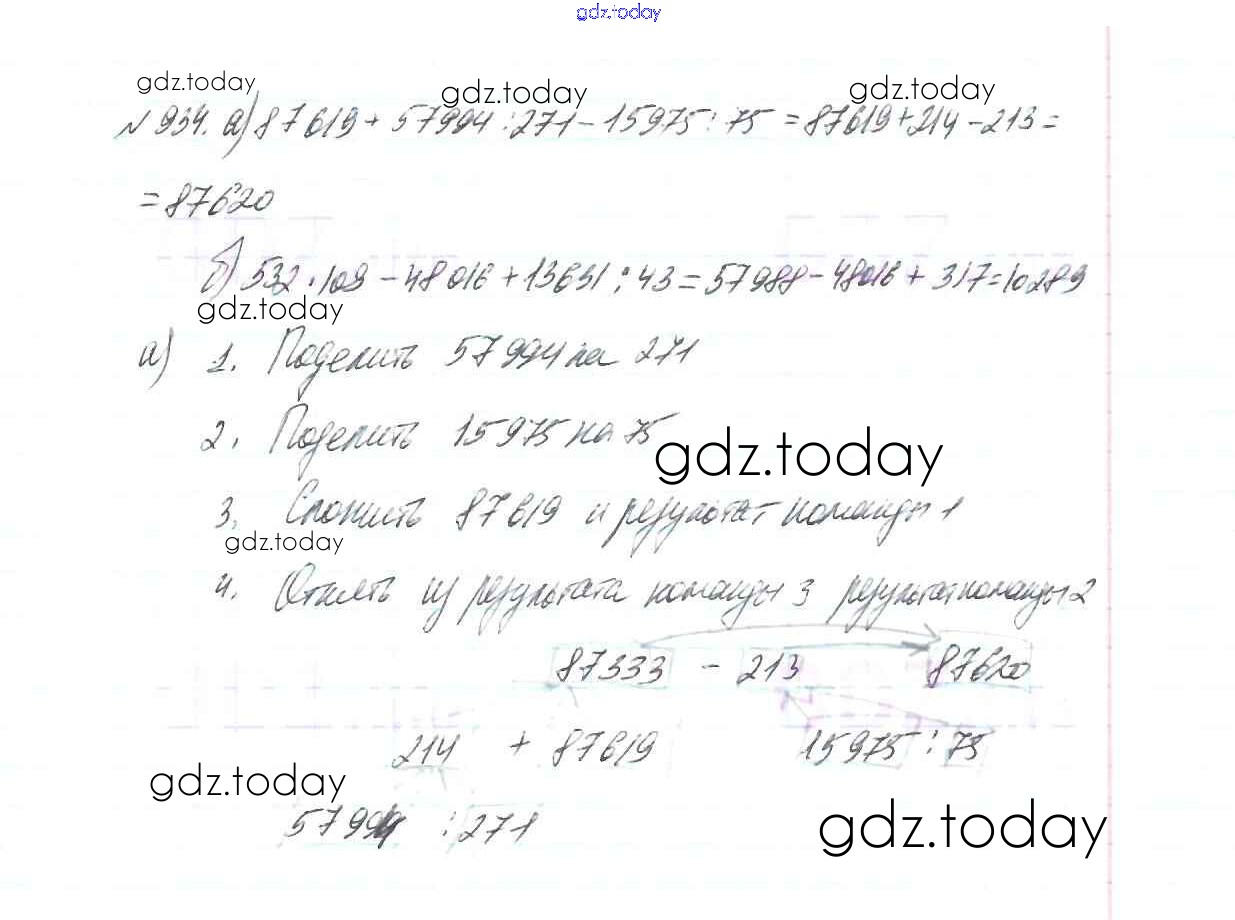 gdz.today
gdz.today gdz.today gdz.today
№934. а) 87619 + 57994 : 271 - 15975 : 75 = 87619 + 214 - 213 =
= 87620
б) 532 · 109 - 48016 + 13631 : 43 = 57988 - 48016 + 317 = 10289
gdz.today
а) 1. Поделить 57994 на 271
2. Поделить 15975 на 75
gdz.today
3. Сложить 87619 и результат команды 1
gdz.today
4. Отнять из результата команды 3 результат команды 2
87333 - 213 87620
214 + 87619 15975 : 75
gdz.today
57994 : 271
gdz.today